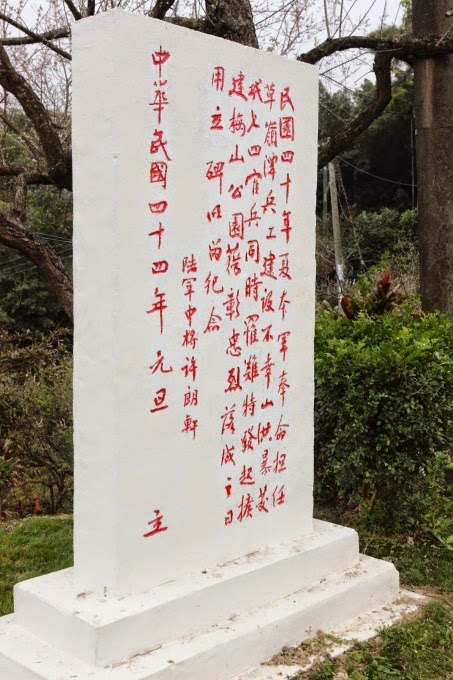 民國四十年夏本軍奉命担任
草嶺潭兵工建設不幸山洪暴發
四官兵同時罹難特發起擴
建梅山公園藉彰忠烈落成之日
用立碑以留紀念
陸軍中將許朗軒
中華民國四十四年元旦 主